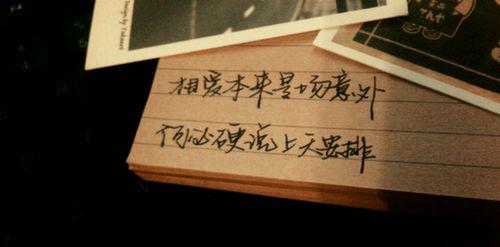 Design by Takeshi
相爱本来是场意外
何必硬说上天安排